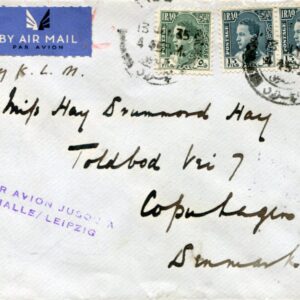 BY AIR MAIL
PAR AVION
IRAQ
IRAQ
POSTAGE
POSTAGE
By K. L. M.
Miss Hay Drummond Hay
Toldbod Vei 7
Copenhagen
Denmark
PAR AVION JUSQU'A
HALLE/LEIPZIG